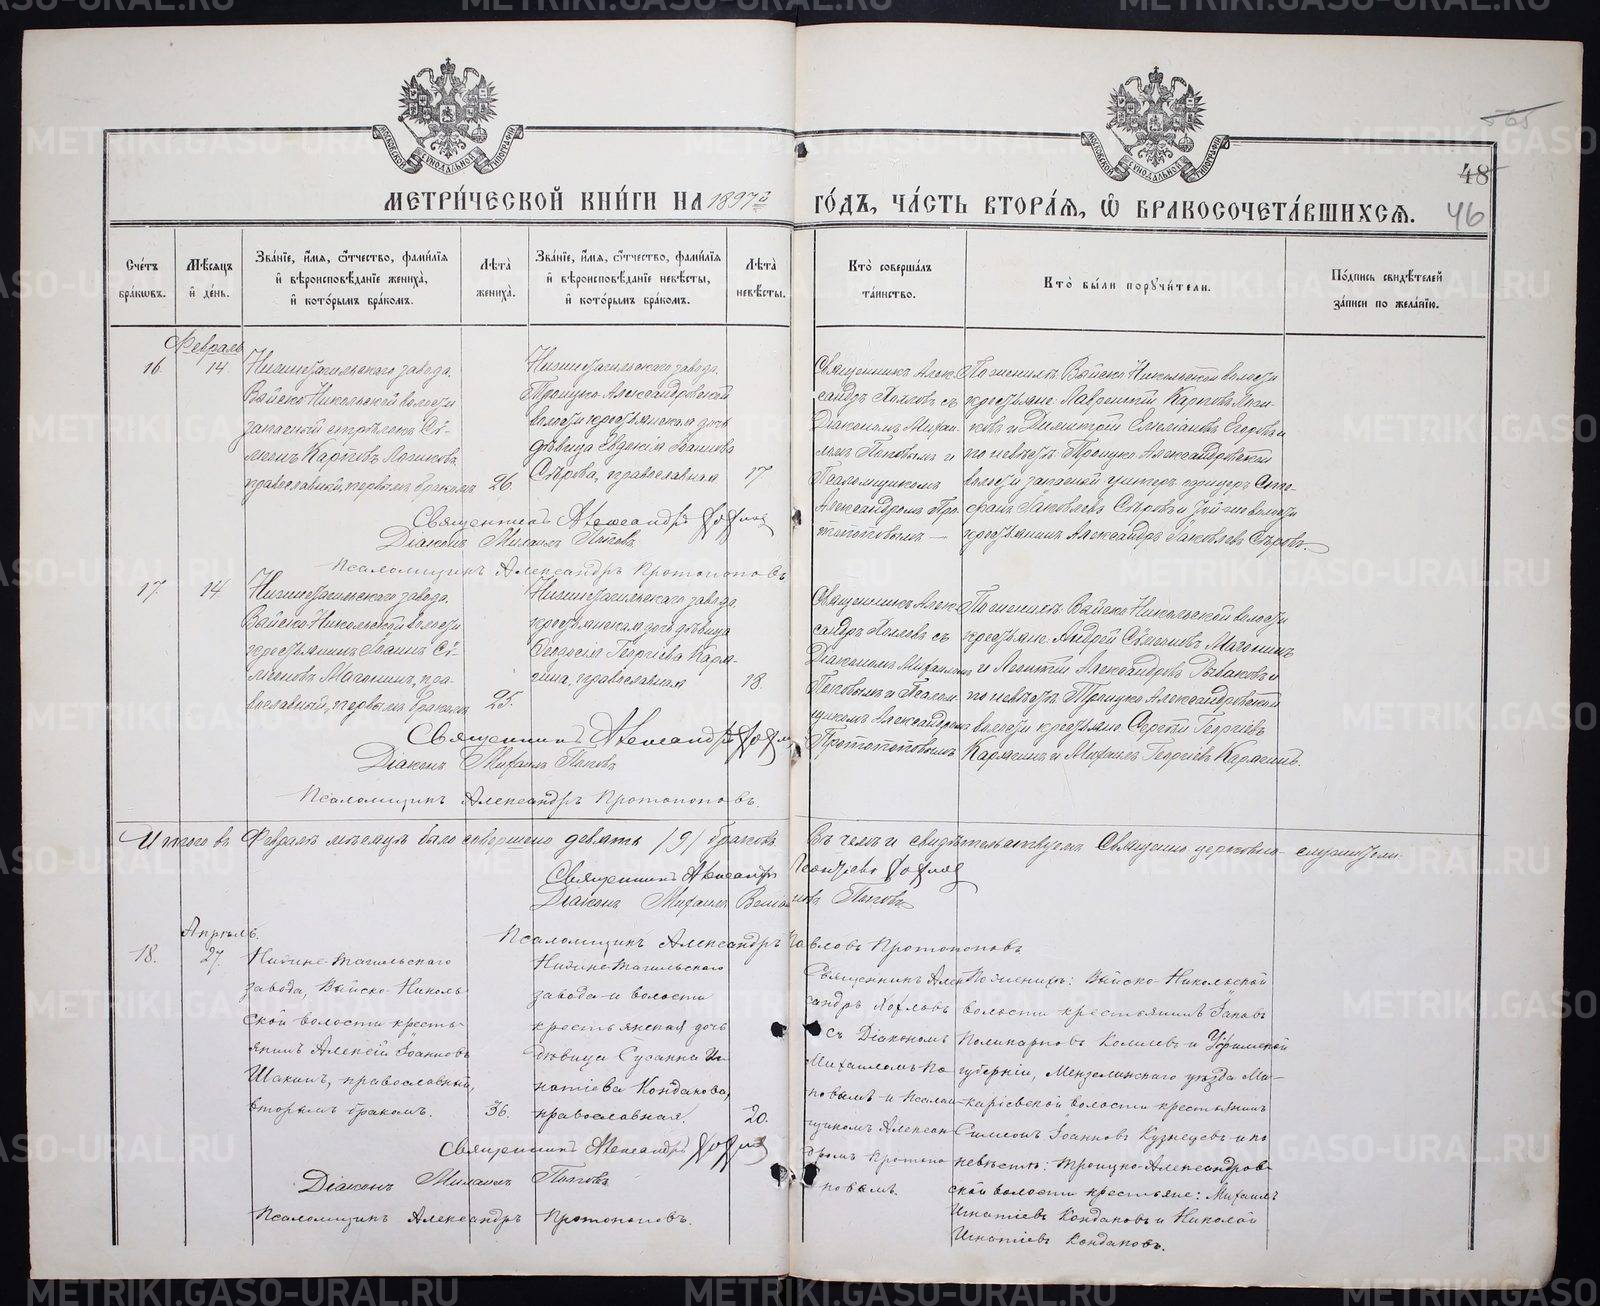 МЕТРИЧЕСКОЙ КНИГИ НА 1897й ГОДЪ, ЧАСТЬ ВТОРАЯ, Ѡ БРАКОСОЧЕТАВШИХСЯ.
48
46
Счетъ браковъ.
Мѣсяцъ и день.
Званіе, имя, отчество, фамилія и вѣроисповѣданіе жениха, и которымъ бракомъ.
Лѣта жениха.
Званіе, имя, отчество, фамилія и вѣроисповѣданіе невѣсты, и которымъ бракомъ.
Лѣта невѣсты.
Кто совершалъ таинство.
Кто были поручители.
Подпись свидѣтелей записи по желанію.
Февраль
16.
14.
Нижнетагильскаго завода,
Выйско-Никольской волости
запасной стрѣлокъ Се-
менъ Карповъ
православный, первымъ бракомъ
26.
Нижнетагильскаго завода,
Троицко-Александровской
волости крестьянская дочь
дѣвица Евдокія Іоаннова
Сѣрова, православная
17
Священникъ Алек-
сандръ Хохловъ съ
Діакономъ Михаи-
ломъ Поповымъ и
Псаломщикомъ
Александромъ Про-
топоповымъ —
По женихѣ Выйско Никольской волости
крестьяне: Лаврентій Карповъ
и Димитрій Егоровъ и
по невѣстѣ Троицко Александровской
волости запасной унтеръ офицеръ Сте-
фанъ Іаковлевъ Сѣровъ и той же волости
крестьянинъ Александръ Іаковлевъ Сѣровъ.
Священникъ Александръ Хохловъ
Діаконъ Михаилъ Поповъ
Псаломщикъ Александръ Протопоповъ
17.
14.
Нижнетагильскаго завода,
Выйско Никольской волости
крестьянинъ Іоаннъ Се-
меновъ Магонинъ, пра-
вославный, первымъ бракомъ
25.
Нижнетагильскаго завода,
крестьянская дочь дѣвица
Ѳеодосія Георгіева Каря-
гина, православная
18.
Священникъ Алек-
сандръ Хохловъ съ
Діакономъ Михаиломъ
Поповымъ и Псалом-
щикомъ Александромъ
Протопоповымъ
По женихѣ Выйско Никольской волости
крестьяне: Андрей Семеновъ Магонинъ
и Леонтій Александровъ Рыбаковъ и
по невѣстѣ Троицко Александровской
волости крестьяне: Сергѣй Георгіевъ
Карягинъ и Михаилъ Георгіевъ Карягинъ.
Священникъ Александръ Хохловъ
Діаконъ Михаилъ Поповъ
Псаломщикъ Александръ Протопоповъ.
Итого въ Февралѣ мѣсяцѣ было совершено девять /9/ браковъ
Въ чемъ и свидѣтельствуемъ Священно церковно-служители:
Священникъ Александръ Леонтіевъ Хохловъ
Діаконъ Михаилъ Поповъ
Псаломщикъ Александръ Павловъ Протопоповъ
Апрѣль.
18.
27.
Нижне-Тагильскаго
завода, Выйско-Николь-
ской волости кресть-
янинъ Алексѣй Іоанновъ
Шакинъ, православный,
вторымъ бракомъ.
36.
Нижне-Тагильскаго
завода и волости
крестьянская дочь
дѣвица Сусанна Иг-
натіева Кондакова,
православная.
20.
Священникъ Алек-
сандръ Хохловъ
съ Діакономъ
Михаиломъ По-
повымъ и Псалом-
щикомъ Алексан-
дромъ Протопо-
повымъ.
По женихѣ: Выйско-Никольской
волости крестьянинъ Іаковъ
Поликарповъ Копыловъ и Уфимской
губерніи, Мензелинскаго уѣзда Ма-
каріевской волости крестьянинъ
Симеонъ Іоанновъ Кузнецовъ и по
невѣстѣ: Троицко-Александров-
ской волости крестьяне: Михаилъ
Игнатіевъ Кондаковъ и Николай
Игнатіевъ Кондаковъ.
Священникъ Александръ Хохловъ
Діаконъ Михаилъ Поповъ
Псаломщикъ Александръ Протопоповъ.
METRIKI.GASO-URAL.RU